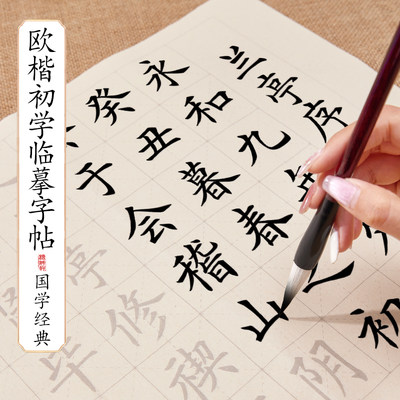 欧楷初学临摹字帖
国学经典
兰亭序
永和九年
癸丑暮春之初
于会稽山阴
亭修禊
毕